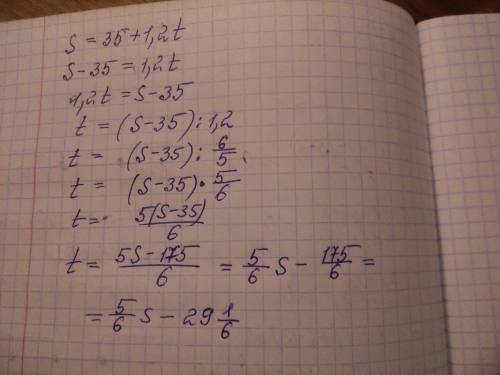 S = 35 + 1,2t
S - 35 = 1,2t
1,2t = S - 35
t = (S - 35) : 1,2
t = (S - 35) : 6/5
t = (S - 35) · 5/6
t = 5(S - 35)/6
t = 5S - 175/6 = 5/6 S - 175/6 =
= 5/6 S - 29 1/6